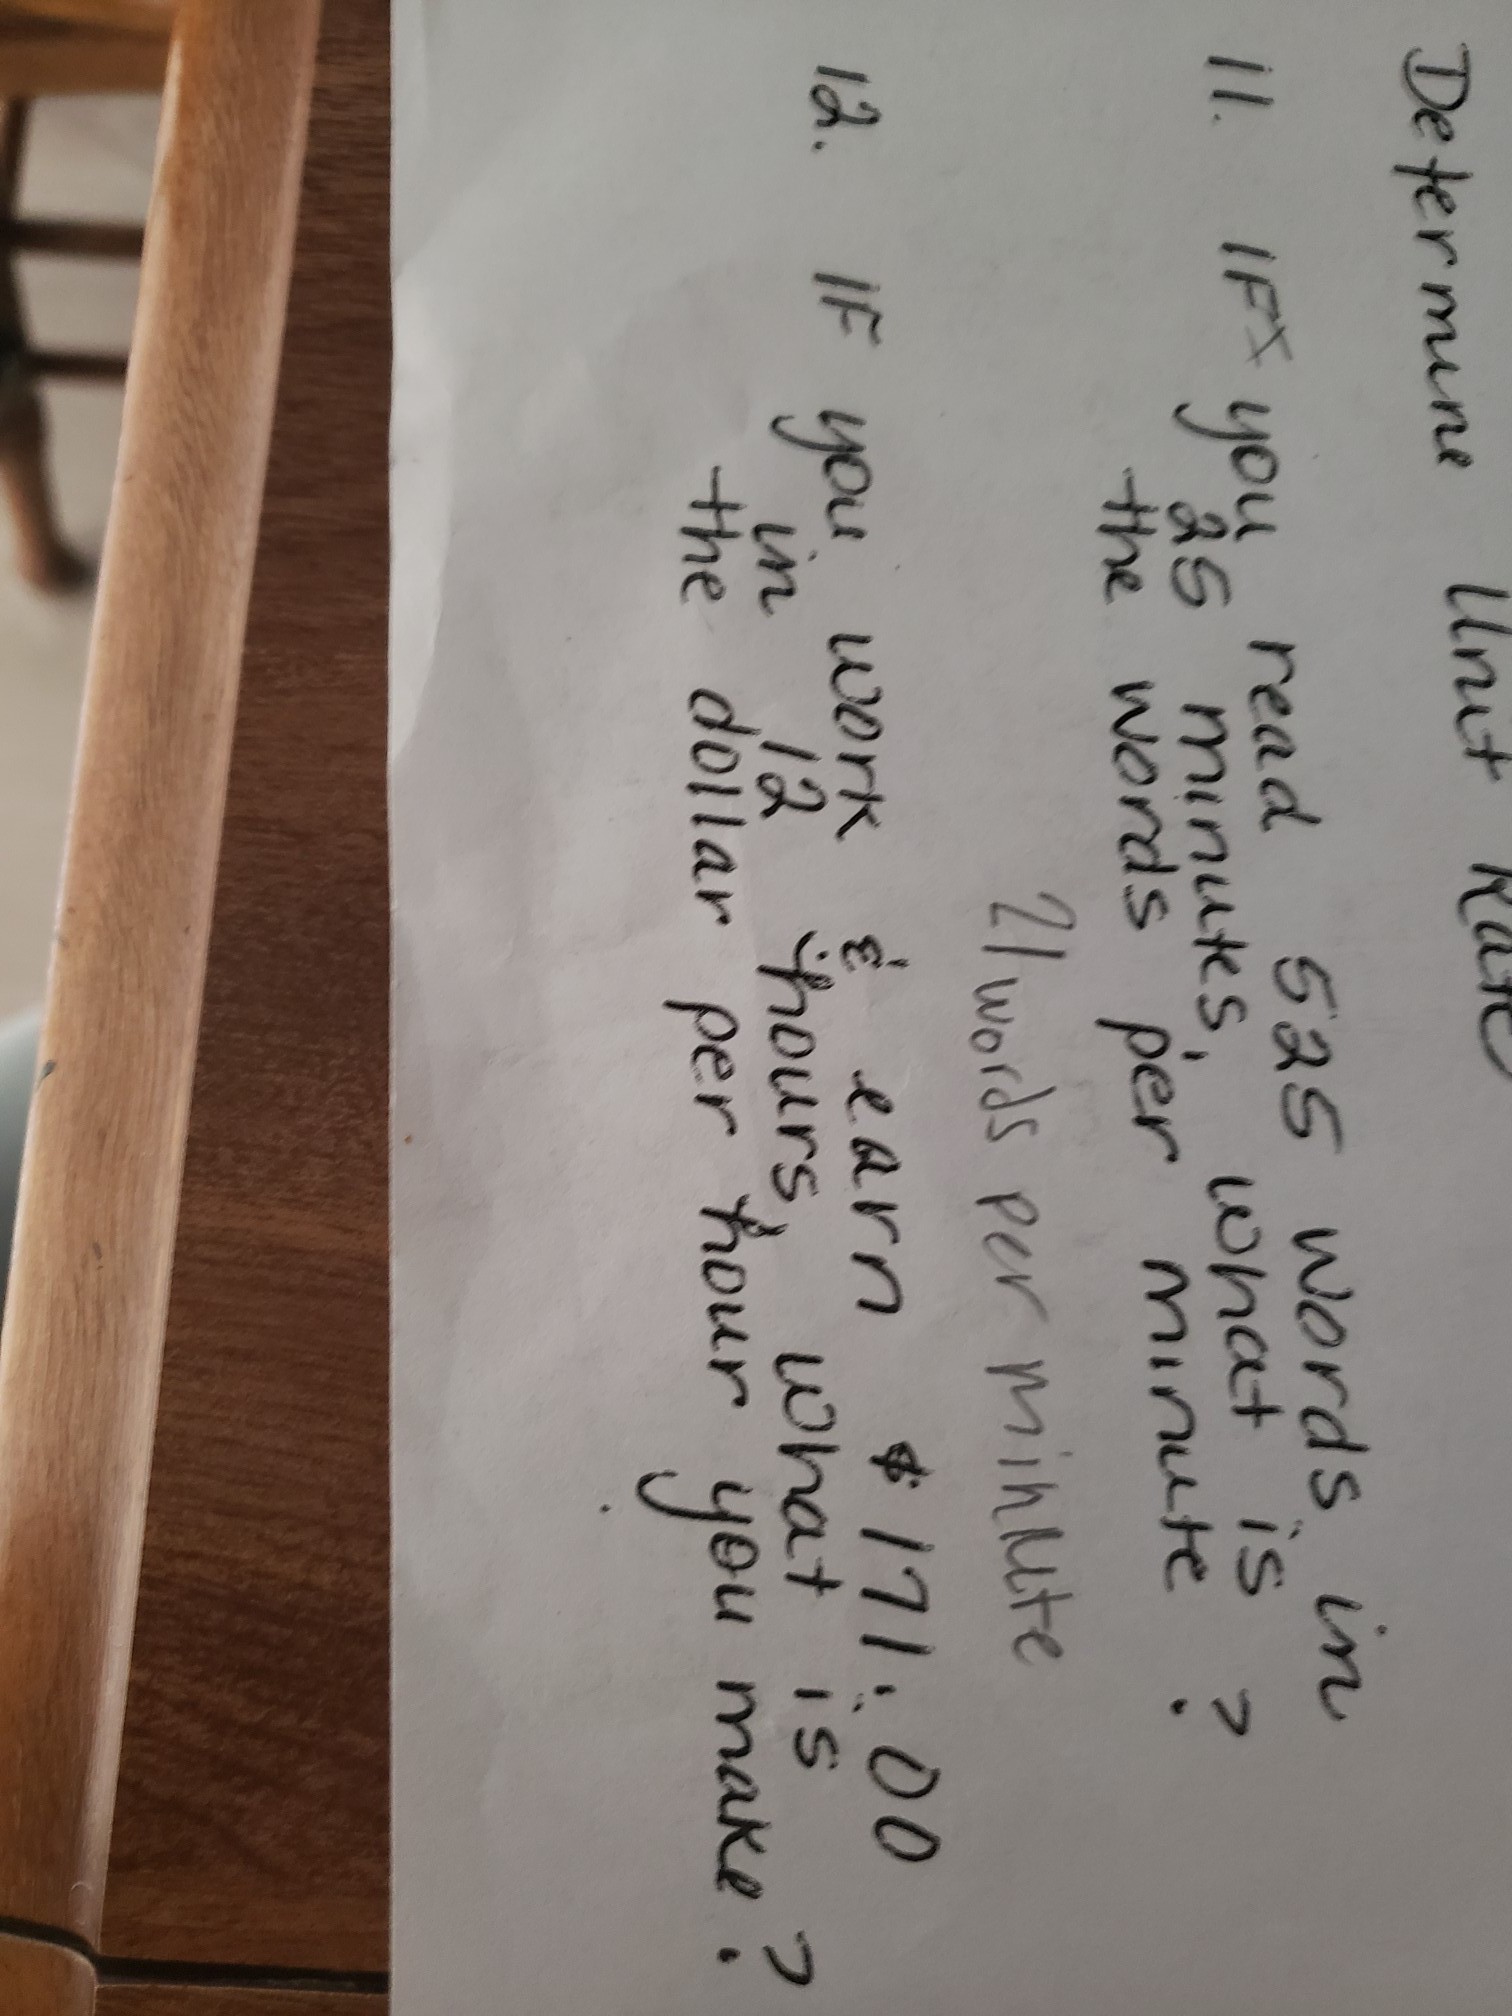 Determine Unit Rate
11. IF you read 525 words in
25 minutes, what is
the words per minute?
21 words per minute
12. IF you work & earn $171.00
in 12 hours, what is
the dollar per hour you make?